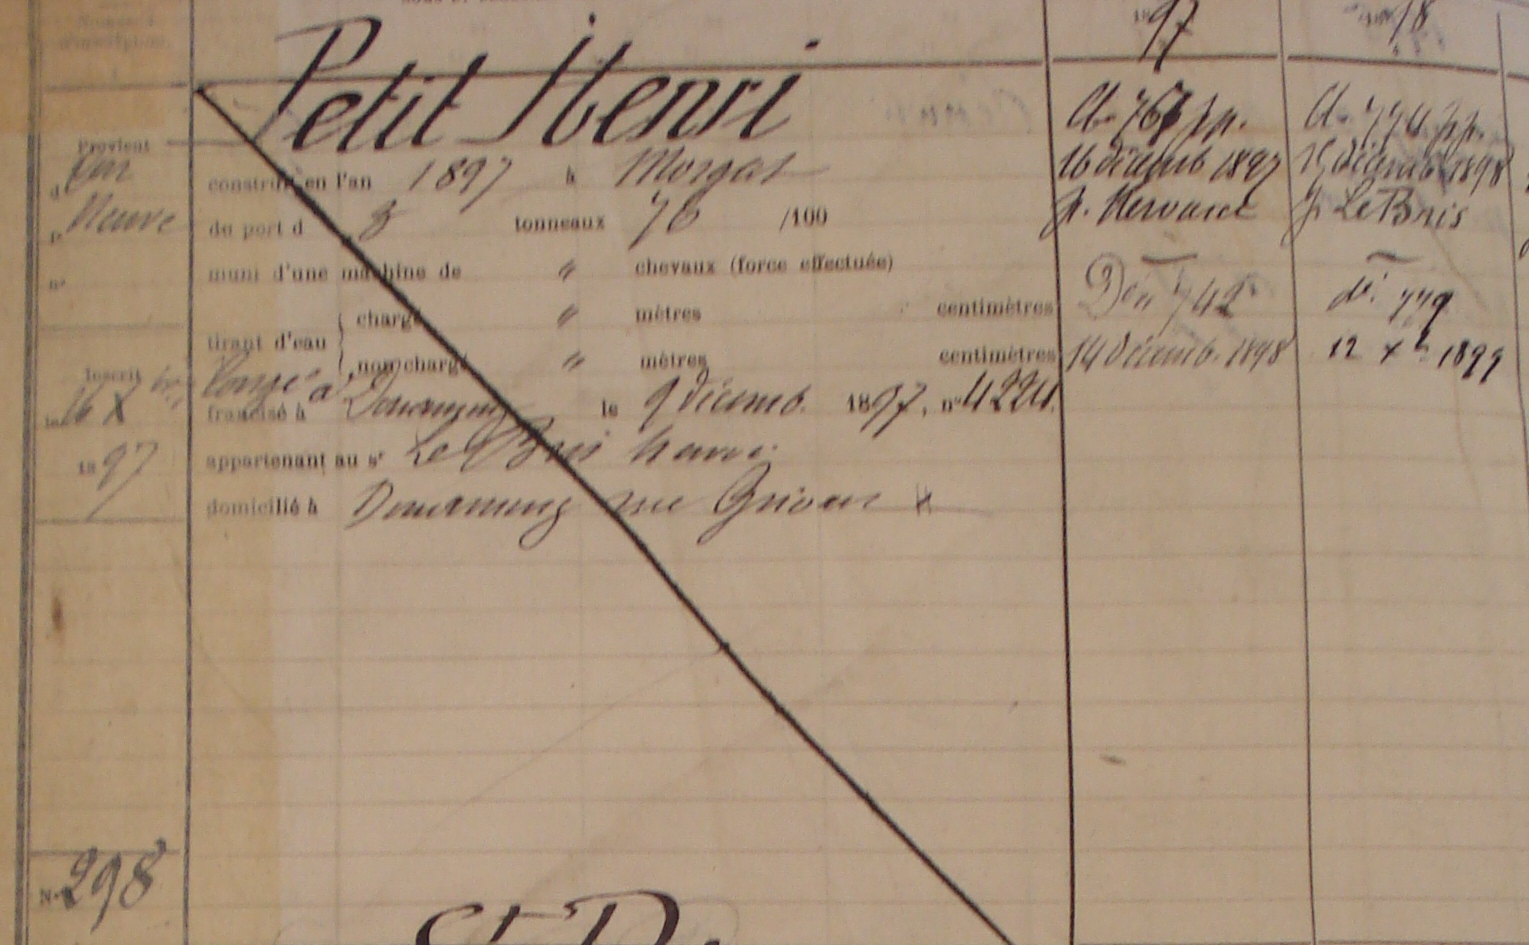 Numéros
d'inscription
1897
1898
Petit Henri
Provient
d
construit en l'an 1897 à Morgat
Neuve
du port d 8 tonneaux 76 /100
n°
muni d'une machine de " chevaux (force effectuée)
tirant d'eau
chargé " mètres centimètres
non chargé " mètres centimètres
Inscrit
le 16 X
1897
francisé à Douarnenez le 9 décemb. 1897, n°
appartenant au sr Le Bris Henri
domicilié à Douarnenez rue
16 décemb 1897
14 décemb. 1898
décemb 1898
p. Le Bris
do 779
12 Xb 1899
N° 298
St